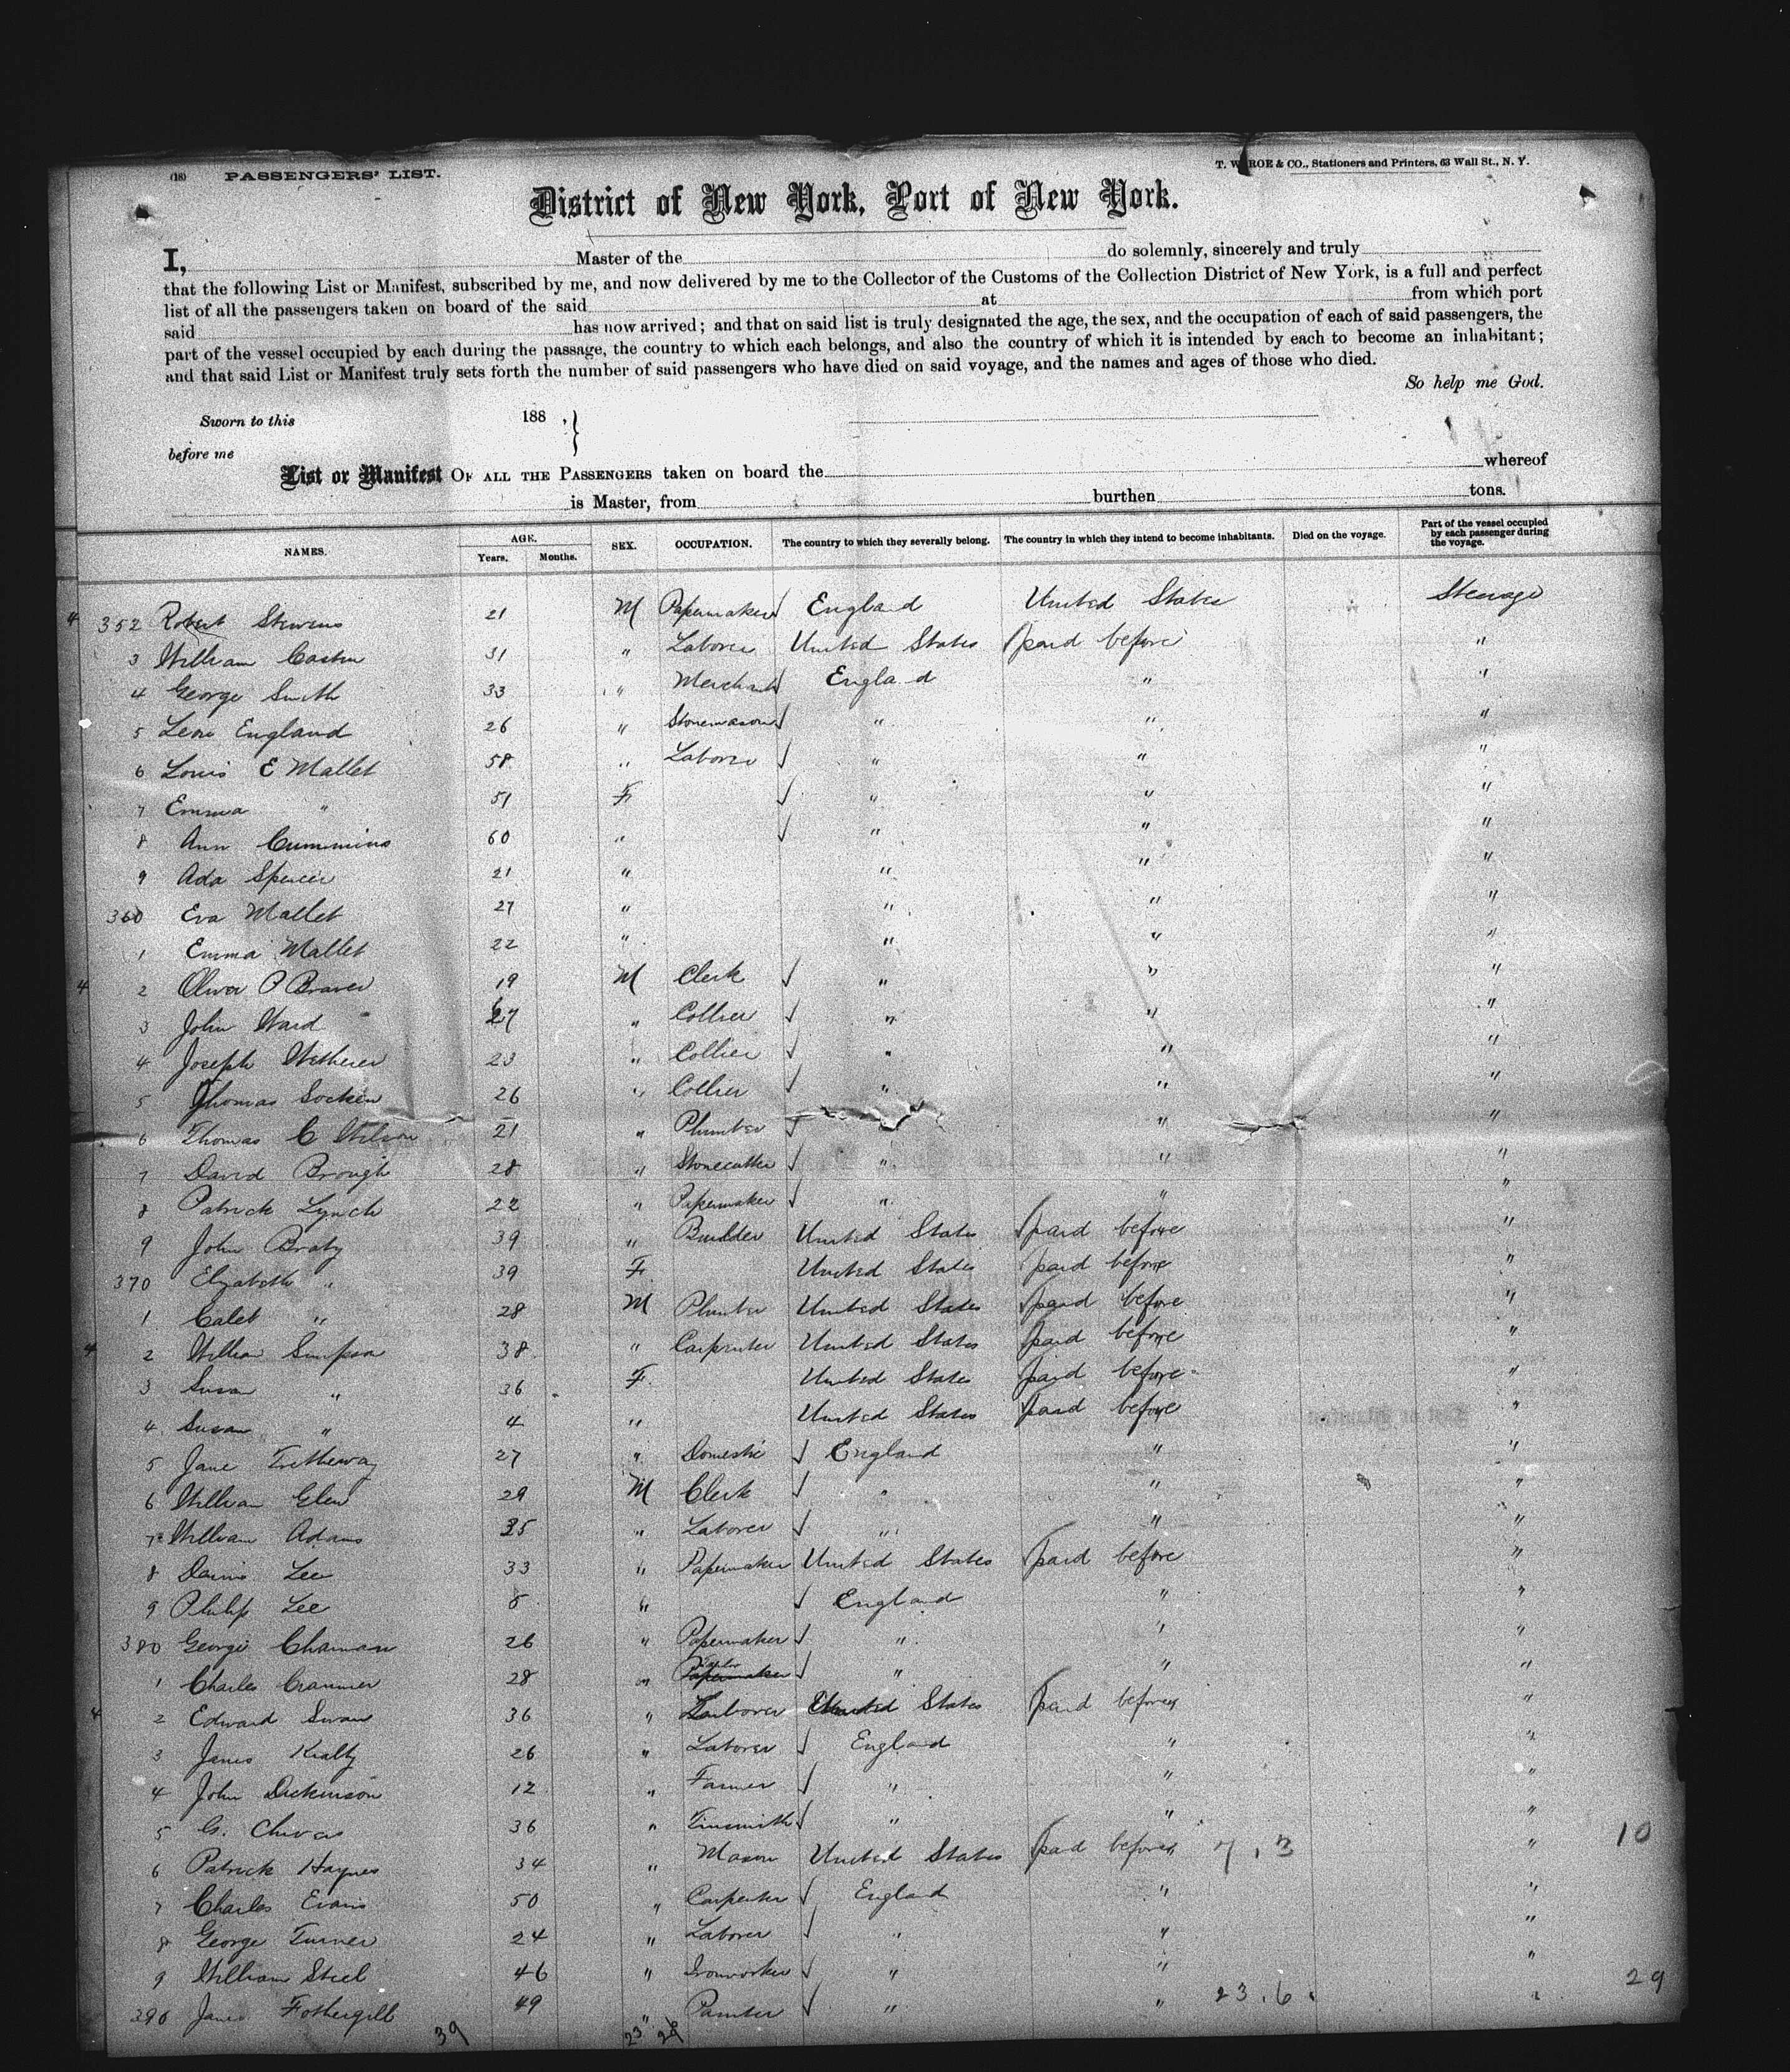 (18) PASSENGERS' LIST.
T. W. ROE & CO., Stationers and Printers, 63 Wall St., N. Y.
District of New York, Port of New York.
I, Master of the do solemnly, sincerely and truly
that the following List or Manifest, subscribed by me, and now delivered by me to the Collector of the Customs of the Collection District of New York, is a full and perfect
list of all the passengers taken on board of the said at from which port
said has now arrived; and that on said list is truly designated the age, the sex, and the occupation of each of said passengers, the
part of the vessel occupied by each during the passage, the country to which each belongs, and also the country of which it is intended by each to become an inhabitant;
and that said List or Manifest truly sets forth the number of said passengers who have died on said voyage, and the names and ages of those who died.
So help me God.
Sworn to this 188 , }
before me
List or Manifest OF ALL THE PASSENGERS taken on board the whereof
is Master, from burthen tons.
NAMES. AGE. Years. Months. SEX. OCCUPATION. The country to which they severally belong. The country in which they intend to become inhabitants. Died on the voyage. Part of the vessel occupied by each passenger during the voyage.
4 352 Robert Stevens 21 M Papermaker England United States Steerage
3 William 31 " Laborer United States paid before "
4 George Smith 33 " Merchant England " "
5 Levi England 26 " Stonemason " " "
6 Louis E Mallet 58 " Laborer " " "
7 Emma " 51 F " " "
8 Ann Cummins 60 " " " "
9 Ada Spencer 21 " " " "
360 Eva Mallet 27 " " " "
1 Emma Mallet 22 " " " "
4 2 Oliver P 19 M Clerk " " "
3 John Ward 27 " Collier " " "
4 Joseph 23 " Collier " " "
5 Thomas 26 " Collier " " "
6 Thomas C Wilson 21 " Plumber " "
7 David Brough 28 " Stonecutter " " "
8 Patrick Lynch 22 " Papermaker " " "
9 John Braty 39 " Builder United States paid before "
370 Elizabeth " 39 F United States paid before "
1 Caleb " 28 M Plumber United States paid before "
4 2 William Simpson 38 " Carpenter United States paid before "
3 Susan " 36 F United States paid before "
4 Susan " 4 " United States paid before "
5 Jane Tretheway 27 " Domestic England " "
6 William Glen 29 M Clerk " " "
7 William Adams 35 " Laborer " " "
8 Lee 33 " Papermaker United States paid before "
9 Philip Lee 8 " England " "
380 George Chaman 26 " Papermaker " " "
1 Charles Cranmer 28 " Papermaker " " "
4 2 Edward Swan 36 " Laborer United States paid before "
3 James Kealty 26 " Laborer England " "
4 John Dickinson 12 " Farmer " " "
5 G. Chivas 36 " Tinsmith " " "
6 Patrick Haynes 34 " Mason United States paid before 7 . 3 " 10
7 Charles Evans 50 " Carpenter England " "
8 George Turner 24 " Laborer " " "
9 William Steel 46 " Ironworker " " "
390 James Fothergill 49 " Painter " " 23 . 6 . " 29
39 23